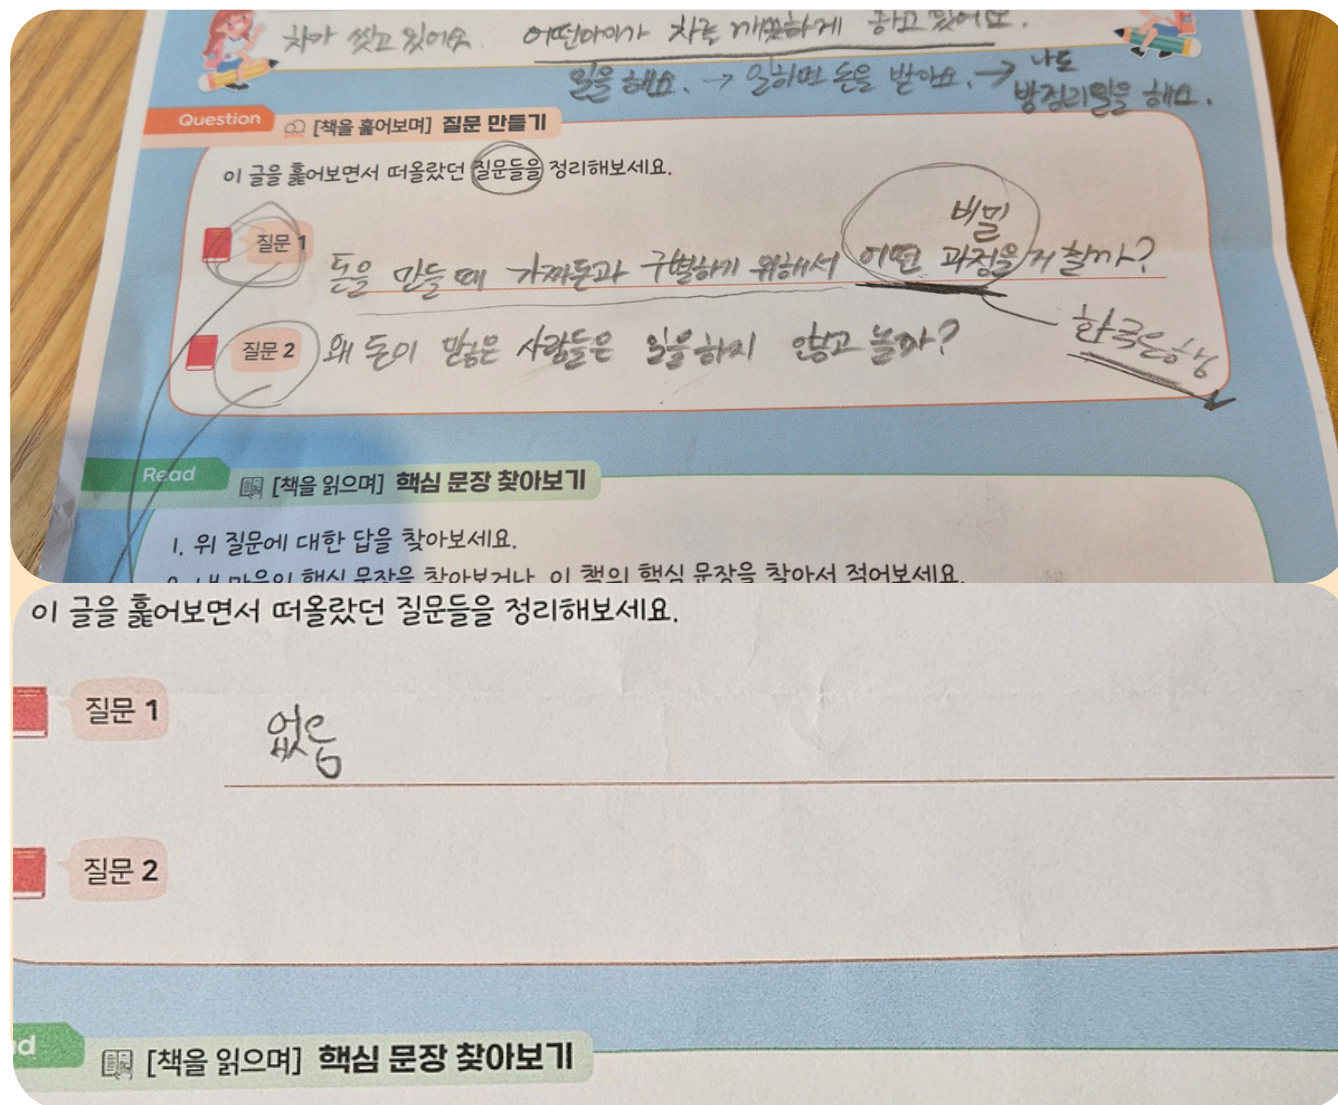 차가 씻고 있어요. 어떤아이가 차를 깨끗하게 하고 있어요.
일을 해요. → 일하면 돈을 받아요. → 나도
방정리일을 해요.
Question [책을 훑어보며] 질문 만들기
이 글을 훑어보면서 떠올랐던 질문들을 정리해보세요.
비밀
질문 1 돈을 만들 때 가짜돈과 구별하기 위해서 어떤 과정을 거칠까?
한국은행
질문 2 왜 돈이 많은 사람들은 일을하지 않고 놀까?
Read [책을 읽으며] 핵심 문장 찾아보기
1. 위 질문에 대한 답을 찾아보세요.
2. 내 마음의 핵심 문장을 찾아보거나, 이 책의 핵심 문장을 찾아서 적어보세요.
이 글을 훑어보면서 떠올랐던 질문들을 정리해보세요.
질문 1 없음
질문 2
d [책을 읽으며] 핵심 문장 찾아보기